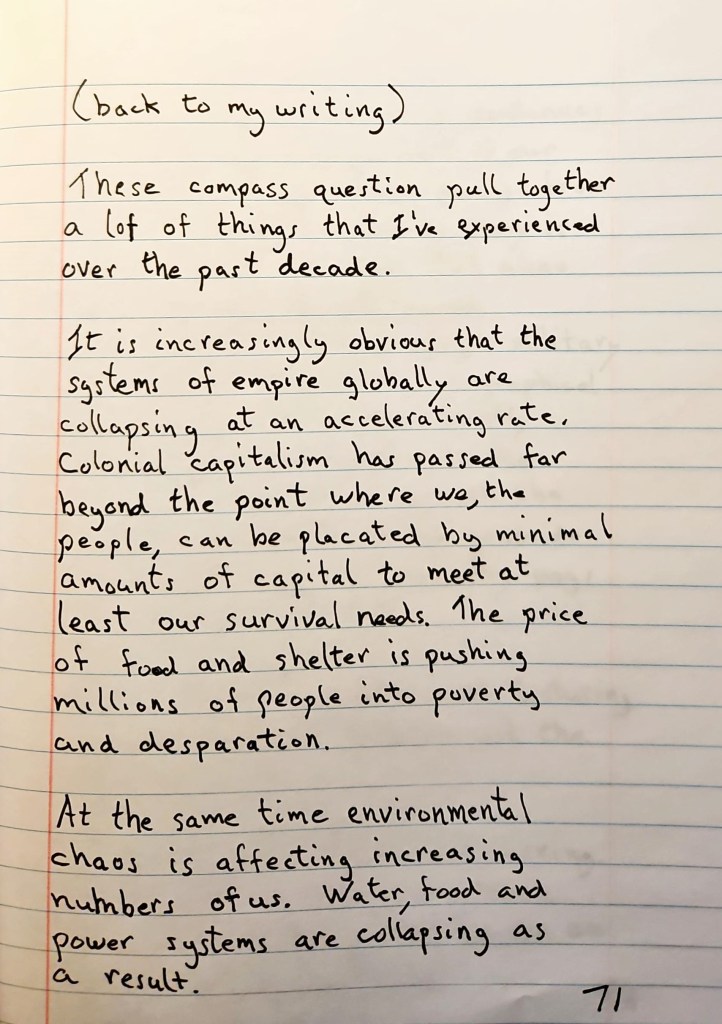 (back to my writing)
These compass question pull together
a lof of things that I've experienced
over the past decade.
It is increasingly obvious that the
systems of empire globally are
collapsing at an accelerating rate.
Colonial capitalism has passed far
beyond the point where we, the
people, can be placated by minimal
amounts of capital to meet at
least our survival needs. The price
of food and shelter is pushing
millions of people into poverty
and desparation.
At the same time environmental
chaos is affecting increasing
numbers of us. Water, food and
power systems are collapsing as
a result.
71